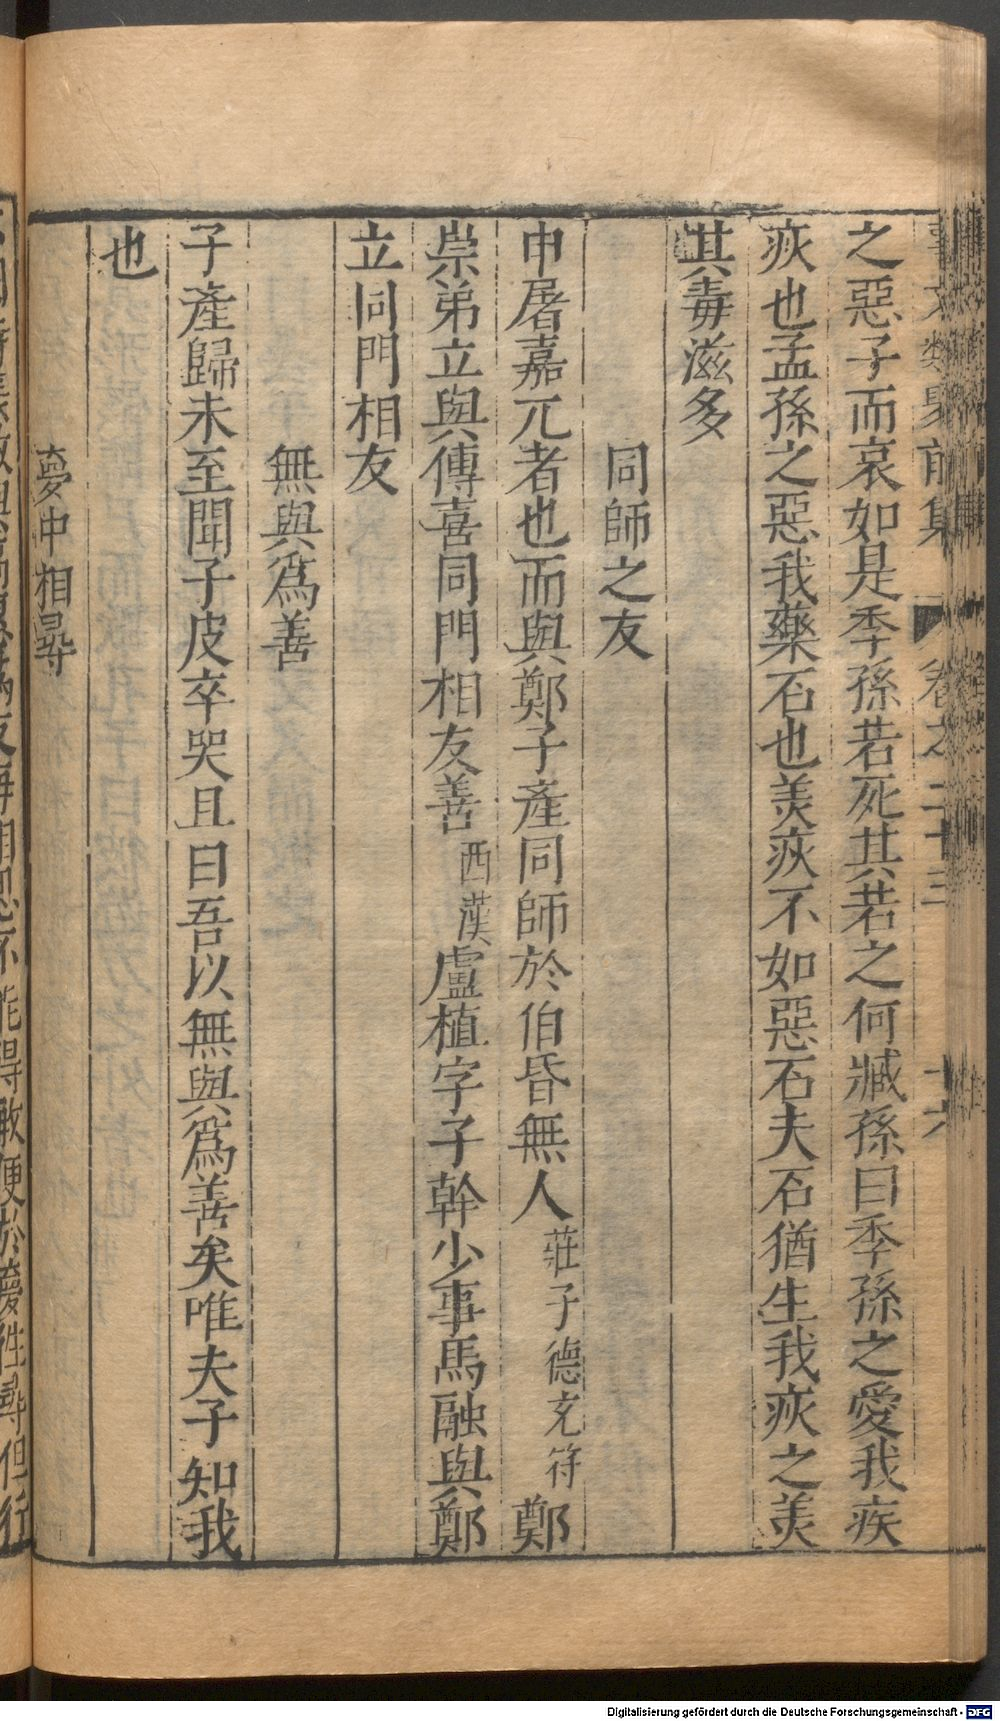 事文類聚前集　卷之二十三　十六
之惡子而哀如是季孫若死其若之何臧孫曰季孫之愛我疾
疢也孟孫之惡我藥石也美疢不如惡石夫石猶生我疢之美
其毒滋多
同師之友
申屠嘉兀者也而與鄭子產同師於伯昏無人莊子德充符鄭
崇弟立與傅喜同門相友善西漢盧植字子幹少事馬融與鄭
立同門相友
無與爲善
子產歸未至聞子皮卒哭且曰吾以無與爲善矣唯夫子知我
也
夢中相尋
友每相思不能得敏便於夢徃尋但行
Digitalisierung gefördert durch die Deutsche Forschungsgemeinschaft - DFG